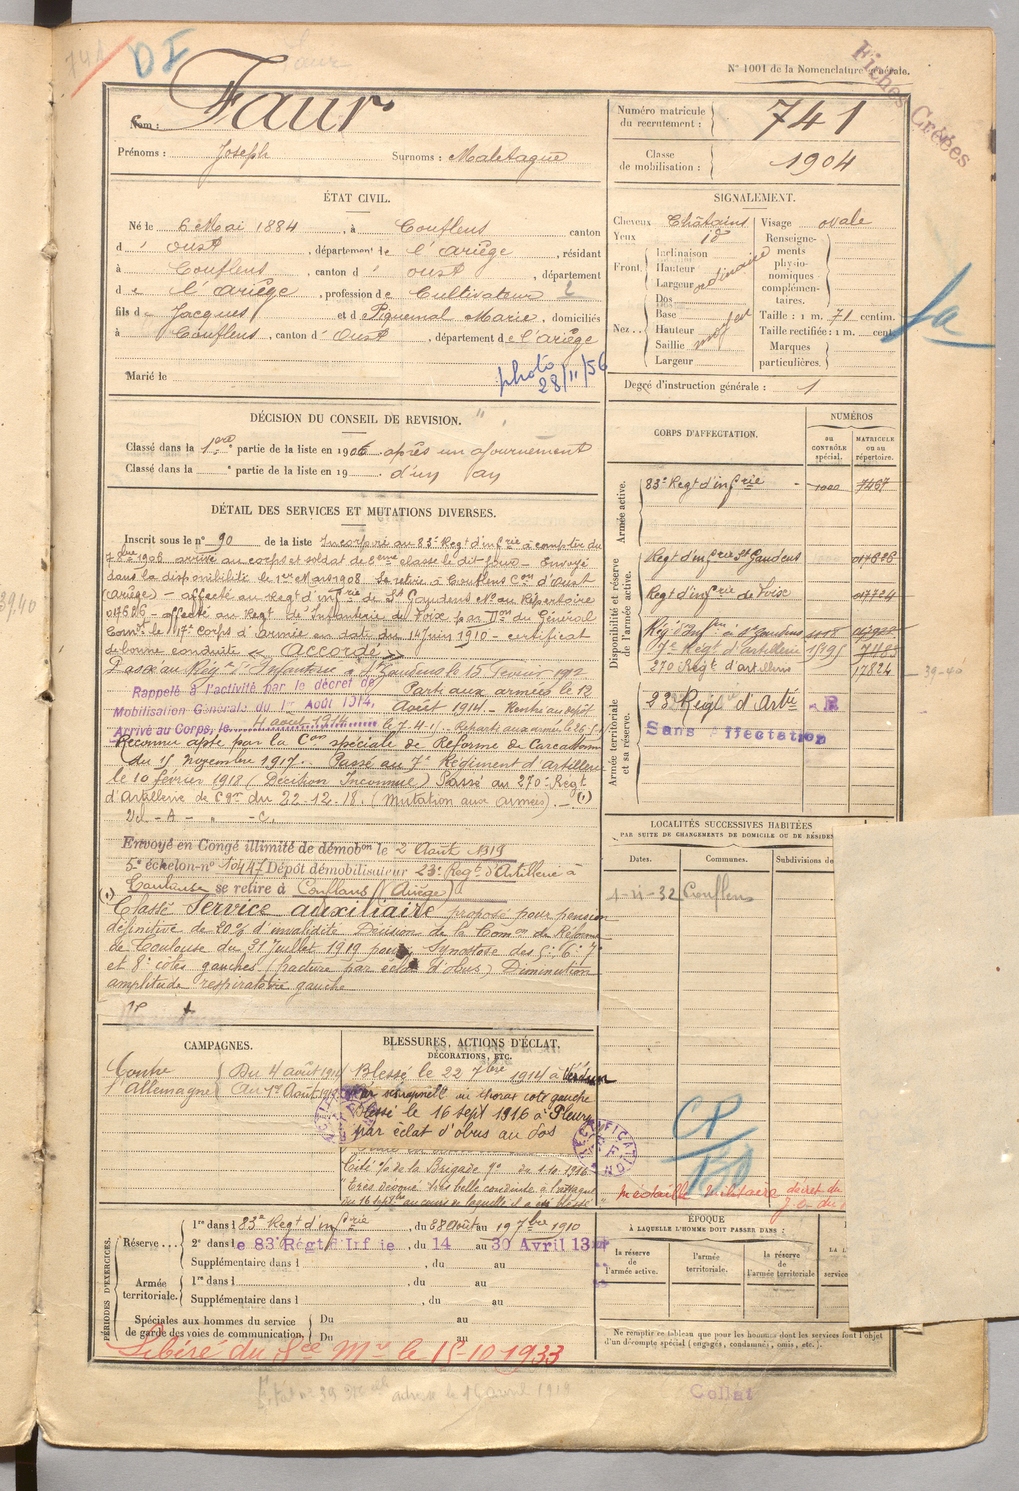 741
DI
Faur
Fiches Créées
N° 1001 de la Nomenclature générale.
Nom : Faur
Prénoms : Joseph Surnoms : Maletague
Numéro matricule du recrutement : 741
Classe de mobilisation : 1904
ÉTAT CIVIL.
Né le 6 Mai 1884, à Couflens canton
d' Oust, département de l'Ariège, résidant
à Couflens, canton d' Oust, département
de l'Ariège, profession de Cultivateur
fils de Jacques et de Piquemal Marie, domiciliés
à Couflens, canton d' Oust, département de l'Ariège
Marié le
photo
28/11/56
SIGNALEMENT.
Cheveux Châtains
Yeux id
Front. Inclinaison
Hauteur
Largeur ordinaire
Nez.. Dos
Base
Hauteur
Saillie moyen
Largeur
Visage ovale
Renseignements physionomiques complémentaires.
Taille : 1 m. 71 centim.
Taille rectifiée : 1 m. cent.
Marques particulières.
Degré d'instruction générale : 1
DÉCISION DU CONSEIL DE REVISION.
Classé dans la 1ère partie de la liste en 1906 après un ajournement
Classé dans la ° partie de la liste en 19 d'un an
CORPS D'AFFECTATION.
NUMÉROS
au CONTRÔLE spécial.
MATRICULE ou au répertoire.
Armée active.
83e Regt d'infrie 7467
Disponibilité et réserve de l'armée active.
Regt d'infrie St Gaudens 017626
Regt d'infrie de Foix 017724
Régt d'infrie à St Gaudens 1118
7e Régt d'artillerie 1595 7483
270 Régt d'artillerie 17824
39-40
Armée territoriale et sa réserve.
23 Régt d'Artie - R
Sans Affectation
DÉTAIL DES SERVICES ET MUTATIONS DIVERSES.
Inscrit sous le n° 90 de la liste Incorporé au 83e Regt d'infrie à compter du
7 8bre 1906 arrivé au corps et soldat de 2eme classe le dit jour - Envoyé
dans la disponibilité le 1er Mars 1908. Se retire à Couflens Con d'Oust
(Ariège) - affecté au Regt d'infrie de St Gaudens No au Répertoire
017626 - affecté au Regt de l'Infanterie de Foix par Don du Général
Comt le 17e Corps d'armée en date du 14 juin 1910 - certificat
de bonne conduite « Accordé »
Passé au Régt d'Infanterie à St Gaudens le 15 Février 1912
Rappelé à l'activité par le décret de
Mobilisation Générale du 1er Août 1914.
Arrivé au Corps, le 4 août 1914
Parti aux armées le 12
Août 1914 - Rentré au dépôt
Reconnu apte par la Con spéciale de Réforme de Carcassonne
du 15 novembre 1917. Passé au 7e Régiment d'artillerie
le 10 février 1918 (Décision Inconnue) Passé au 270e Régt
d'Artillerie de Cgne du 22-12-18. (mutation aux armées). (1)
Envoyé en Congé illimité de démobon le 2 Août 1919
5e échelon-n° Dépôt démobilisateur 23e Regt d'Artillerie à
Toulouse se retire à Couflans (Ariège)
(1) Classé Service auxiliaire proposé pour pension
définitive de 20% d'invalidité Décision de la Comon de Réforme
de Toulouse du 31 Juillet 1919 pour Synostose des 5e, 6e 7e
et 8e côtes gauches (fracture par éclat d'obus) Diminution
amplitude respiratoire gauche
LOCALITÉS SUCCESSIVES HABITÉES
PAR SUITE DE CHANGEMENTS DE DOMICILE OU DE RÉSIDEN
Dates.
Communes.
Subdivisions de
1-11-32 Couflens
CAMPAGNES.
Contre l'Allemagne
Du 4 août 1914
Au 1er Août 1919
BLESSURES, ACTIONS D'ÉCLAT, DÉCORATIONS, ETC.
Blessé le 22 7bre 1914 à Verdun
par schrapnell au thorax coté gauche
Blessé le 16 sept 1916 à Fleury
par éclat d'obus au dos
RECTIFICATION
Cité o/ de la Brigade n° du 1.10.1916
"Très dévoué très belle conduite à l'attaque
du 16 septbre au cours de laquelle il a été blessé"
Médaille militaire décret du
PÉRIODES D'EXERCICES.
Réserve...
1re dans le 83e Regt d'infrie, du au 19 7bre 1910
2e dans le 83e Régt d'Infie, du 14 au 30 Avril 13
Supplémentaire dans l , du au
Armée territoriale.
1re dans l , du au
Supplémentaire dans l , du au
Spéciales aux hommes du service de garde des voies de communication.
Du au
Du au
ÉPOQUE
À LAQUELLE L'HOMME DOIT PASSER DANS :
la réserve de l'armée active.
l'armée territoriale.
la réserve de l'armée territoriale
Ne remplir ce tableau que pour les hommes dont les services font l'objet
d'un décompte spécial (engagés, condamnés, omis, etc.).
Libéré du Sce Mre le 15-10-1933
Collat